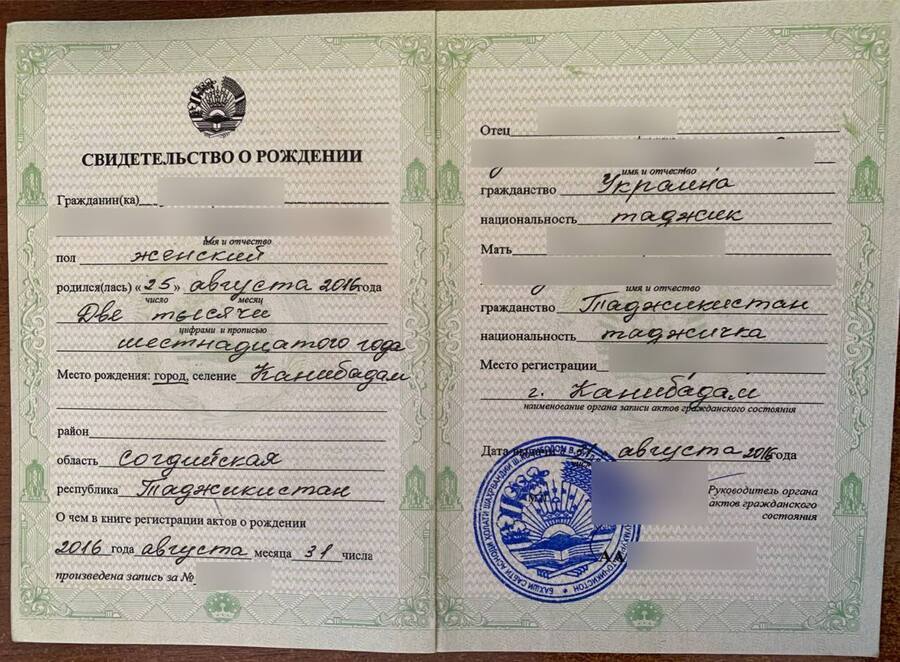 СВИДЕТЕЛЬСТВО О РОЖДЕНИИ
Гражданин(ка)
имя и отчество
пол женский
родился(лась) «25» августа 2016 года
число месяц
Две тысячи
цифрами и прописью
шестнадцатого года
Место рождения: город, селение Канибадам
район
область Согдийская
республика Таджикистан
О чем в книге регистрации актов о рождении
2016 года августа месяца 31 числа
произведена запись за №
Отец
имя и отчество
гражданство Украина
национальность таджик
Мать
имя и отчество
гражданство Таджикистан
национальность таджичка
Место регистрации
г. Канибадам
наименование органа записи актов гражданского состояния
Дата выдачи августа 2016 года
Руководитель органа
актов гражданского
состояния